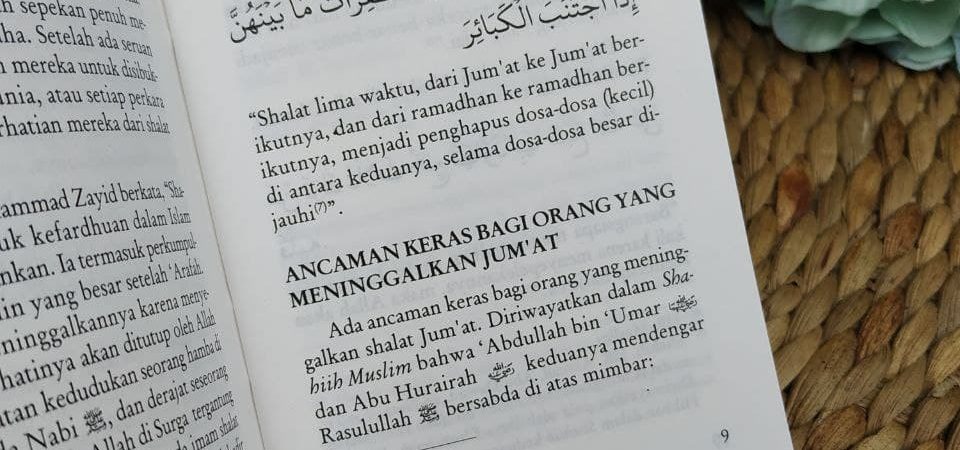 sepekan penuh me-
ha. Setelah ada seruan
mereka untuk disibuk-
unia, atau setiap perkara
rhatian mereka dari shalat
ammad Zayid berkata, “Sha-
uk kefardhuan dalam Islam
nkan. Ia termasuk perkumpul-
in yang besar setelah ‘Arafah.
ninggalkannya karena menye-
hatinya akan ditutup oleh Allah
tan kedudukan seorang hamba di
Nabi ﷺ, dan derajat seseorang
Allah di Surga tergantung
imam shalat
مَا بَيْنَهُنَّ
إِذَا اجْتُنِبَ الْكَبَائِرَ
“Shalat lima waktu, dari Jum'at ke Jum'at ber-
ikutnya, dan dari ramadhan ke ramadhan ber-
ikutnya, menjadi penghapus dosa-dosa (kecil)
di antara keduanya, selama dosa-dosa besar di-
jauhi(7)”.
ANCAMAN KERAS BAGI ORANG YANG
MENINGGALKAN JUM'AT
Ada ancaman keras bagi orang yang mening-
galkan shalat Jum'at. Diriwayatkan dalam Sha-
hiih Muslim bahwa ‘Abdullah bin ‘Umar
dan Abu Hurairah keduanya mendengar
Rasulullah ﷺ bersabda di atas mimbar:
9